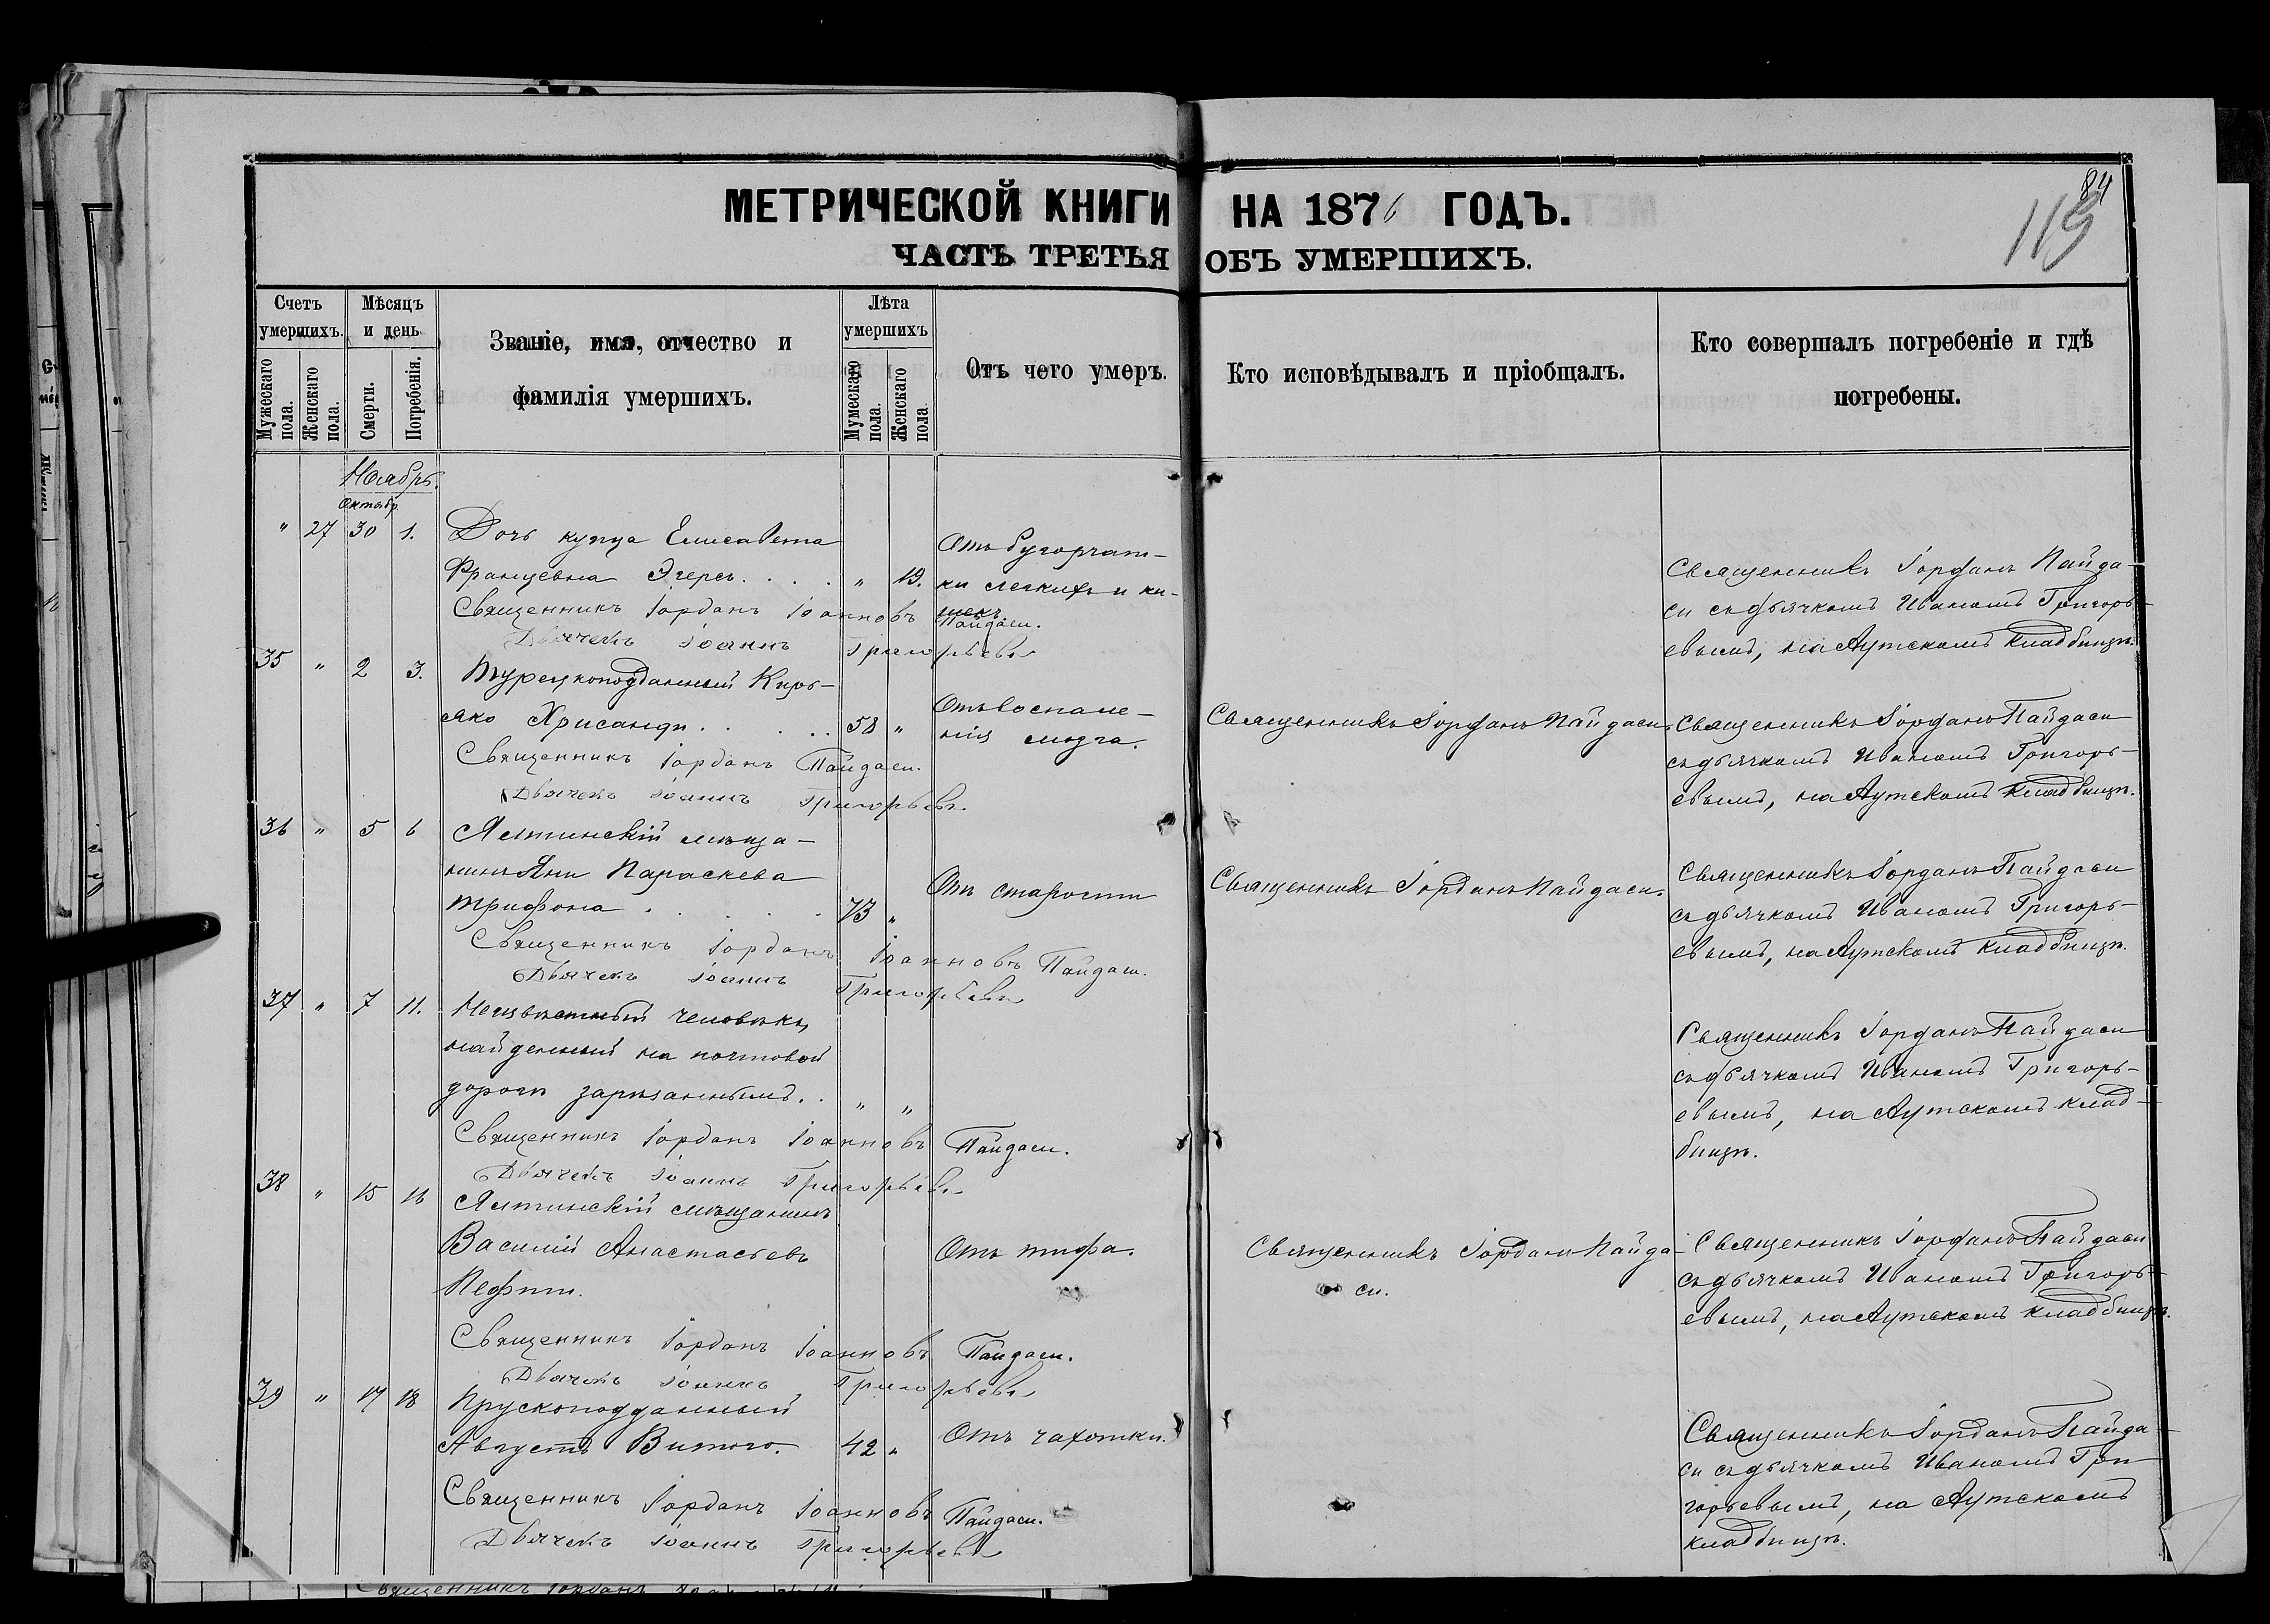 84
119
МЕТРИЧЕСКОЙ КНИГИ НА 1876 ГОДЪ.
ЧАСТЬ ТРЕТЬЯ ОБЪ УМЕРШИХЪ.
Счетъ умершихъ.
Мужескаго пола.
Женскаго пола.
Мѣсяцъ и день
Смерти.
Погребенія.
Званіе, имя, отчество и
фамилія умершихъ.
Лѣта умершихъ
Мужескаго пола.
Женскаго пола.
Отъ чего умеръ.
Кто исповѣдывалъ и пріобщалъ.
Кто совершалъ погребеніе и гдѣ
погребены.
Ноябрь.
Октябр.
" 27 30 1. Дочь купца Елисавета
Францевна Эгерсъ. . . . " 19.
Отъ бугорчат-
ки легкихъ и ки-
шекъ
Священникъ Іорданъ Пайда-
си съ дьячкомъ Иваномъ Григорь-
евымъ, на Аутскомъ кладбищѣ.
Священникъ Іорданъ Іоанновъ Пайдаси.
Дьячекъ Іоаннъ Григорьевъ
35 " 2 3. Турецкоподданный Кирь-
яко Хрисанди . . . . . 58 "
Отъ воспале-
нія мозга.
Священникъ Іорданъ Пайдаси.
Священникъ Іорданъ Пайдаси
съ дьячкомъ Иваномъ Григорь-
евымъ, на Аутскомъ кладбищѣ.
Священникъ Іорданъ Пайдаси.
Дьячекъ Іоаннъ Григорьевъ.
36 " 5 6 Ялтинскій мѣща-
нинъ Яни Параскева
Трифона . . . . . 73 "
Отъ старости
Священникъ Іорданъ Пайдаси.
Священникъ Іорданъ Пайдаси
съ дьячкомъ Иваномъ Григорь-
евымъ, на Аутскомъ кладбищѣ.
Священникъ Іорданъ Іоанновъ Пайдаси.
Дьячекъ Іоаннъ Григорьевъ
37 " 7 11. Неизвѣстный человѣкъ,
найденный на почтовой
дороги зарѣзаннымъ. . " "
Священникъ Іорданъ Пайдаси
съ дьячкомъ Иваномъ Григорь-
евымъ, на Аутскомъ клад-
бищѣ.
Священникъ Іорданъ Іоанновъ Пайдаси.
Дьячекъ Іоаннъ Григорьевъ
38 " 15 16 Ялтинскій мѣщанинъ
Василій Анастасьевъ
Нефти.
Отъ тифа.
Священникъ Іорданъ Пайда-
си.
Священникъ Іорданъ Пайдаси
съ дьячкомъ Иваномъ Григорь-
евымъ, на Аутскомъ кладбищѣ.
Священникъ Іорданъ Іоанновъ Пайдаси.
Дьячекъ Іоаннъ Григорьевъ
39 " 17 18 Прускоподданный
Августъ Витого. 42 "
Отъ чахотки.
Священникъ Іорданъ Пайда-
си съ дьячкомъ Иваномъ Гри-
горьевымъ, на Аутскомъ
кладбищѣ.
Священникъ Іорданъ Іоанновъ Пайдаси.
Дьячекъ Іоаннъ Григорьевъ